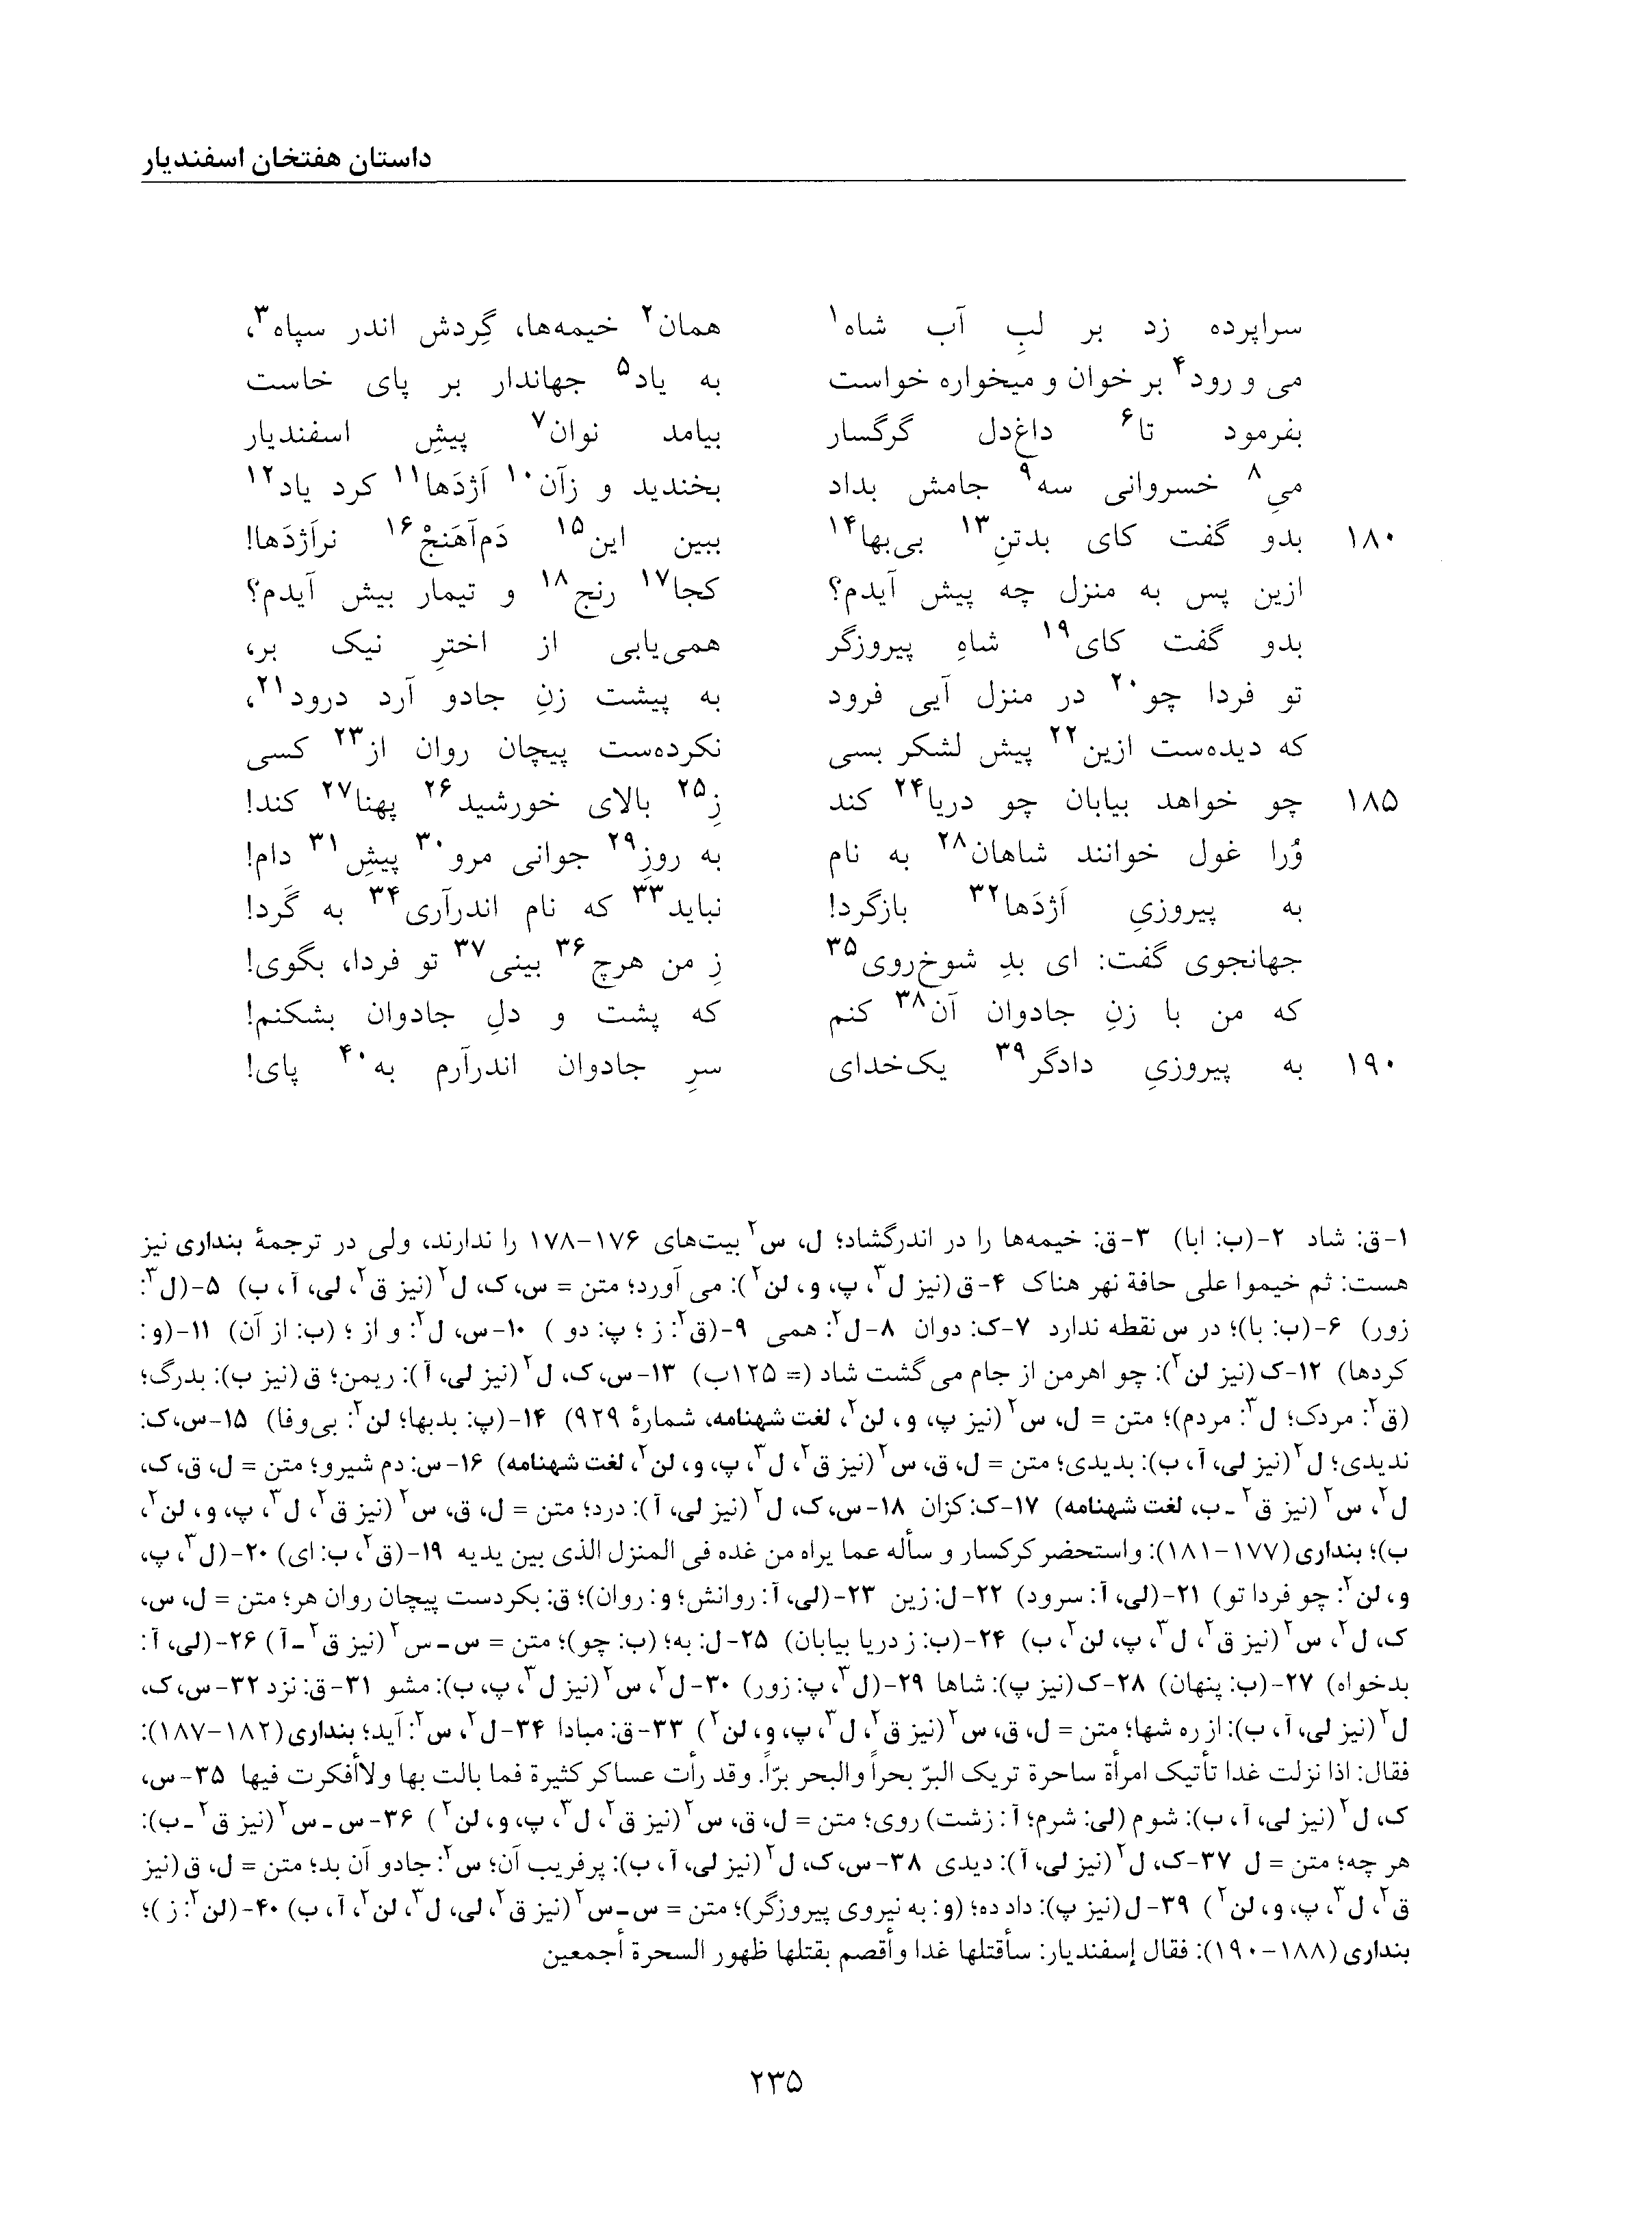 داستان هفتخان اسفندیار
سراپرده زد بر لبِ آب شاه۱ همان۲ خیمه‌ها، گِردش اندر سپاه۳،
می و رود۴ بر خوان و میخواره خواست به یاد۵ جهاندار بر پای خاست
بفرمود تا۶ داغ‌دل گرگسار بیامد نوان۷ پیشِ اسفندیار
می۸ خسروانی سه۹ جامش بداد بخندید و زآن۱۰ اَژدَها۱۱ کرد یاد۱۲
۱۸۰ بدو گفت کای بدتنِ۱۳ بی‌بها۱۴ ببین این۱۵ دَم‌آهَنجْ۱۶ نراَژدَها!
ازین پس به منزل چه پیش آیدم؟ کجا۱۷ رنج۱۸ و تیمار بیش آیدم؟
بدو گفت کای۱۹ شاهِ پیروزگر همی‌یابی از اخترِ نیک بر،
تو فردا چو۲۰ در منزل آیی فرود به پیشت زنِ جادو آرد درود۲۱،
که دیده‌ست ازین۲۲ پیش لشکر بسی نکرده‌ست پیچان روان از۲۳ کسی
۱۸۵ چو خواهد بیابان چو دریا۲۴ کند زِ۲۵ بالای خورشید۲۶ پهنا۲۷ کند!
وُرا غول خوانند شاهان۲۸ به نام به روزِ۲۹ جوانی مرو۳۰ پیشِ۳۱ دام!
به پیروزیِ اَژدَها۳۲ بازگرد! نباید۳۳ که نام اندرآری۳۴ به گَرد!
جهانجوی گفت: ای بدِ شوخ‌روی۳۵ زِ من هرچ۳۶ بینی۳۷ تو فردا، بگوی!
که من با زنِ جادوان آن۳۸ کنم که پشت و دلِ جادوان بشکنم!
۱۹۰ به پیروزیِ دادگر۳۹ یک‌خدای سرِ جادوان اندرآرم به۴۰ پای!
۱-ق: شاد ۲-(ب: ابا) ۳-ق: خیمه‌ها را در اندرگشاد؛ ل، س۲ بیت‌های ۱۷۶-۱۷۸ را ندارند، ولی در ترجمهٔ بنداری نیز
هست: ثم خیموا علی حافة نهر هناک ۴-ق (نیز ل۳، پ، و، لن۲): می آورد؛ متن = س، ک، ل۲ (نیز ق۲، لی، آ، ب) ۵-(ل۳:
زور) ۶-(ب: با)؛ در س نقطه ندارد ۷-ک: دوان ۸-ل۲: همی ۹-(ق۲: ز؛ پ: دو) ۱۰-س، ل۲: و از؛ (ب: از آن) ۱۱-(و:
کردها) ۱۲-ک (نیز لن۲): چو اهرمن از جام می گشت شاد (= ۱۲۵ب) ۱۳-س، ک، ل۲ (نیز لی، آ): ریمن؛ ق (نیز ب): بدرگ؛
(ق۲: مردک؛ ل۳: مردم)؛ متن = ل، س۲ (نیز پ، و، لن۲، لغت شهنامه، شمارهٔ ۹۲۹) ۱۴-(پ: بدبها؛ لن۲: بی‌وفا) ۱۵-س، ک:
ندیدی؛ ل۲ (نیز لی، آ، ب): بدیدی؛ متن = ل، ق، س۲ (نیز ق۲، ل۳، پ، و، لن۲، لغت شهنامه) ۱۶-س: دم شیرو؛ متن = ل، ق، ک،
ل۲، س۲ (نیز ق۲ ـ ب، لغت شهنامه) ۱۷-ک: کزان ۱۸-س، ک، ل۲ (نیز لی، آ): درد؛ متن = ل، ق، س۲ (نیز ق۲، ل۳، پ، و، لن۲،
ب)؛ بنداری (۱۷۷-۱۸۱): واستحضر کرکسار و سأله عما یراه من غده فی المنزل الذی بین یدیه ۱۹-(ق۲، ب: ای) ۲۰-(ل۳، پ،
و، لن۲: چو فردا تو) ۲۱-(لی، آ: سرود) ۲۲-ل: زین ۲۳-(لی، آ: روانش؛ و: روان)؛ ق: بکردست پیچان روان هر؛ متن = ل، س،
ک، ل۲، س۲ (نیز ق۲، ل۳، پ، لن۲، ب) ۲۴-(ب: ز دریا بیابان) ۲۵-ل: به؛ (ب: چو)؛ متن = س ـ س۲ (نیز ق۲ ـ آ) ۲۶-(لی، آ:
بدخواه) ۲۷-(ب: پنهان) ۲۸-ک (نیز پ): شاها ۲۹-(ل۳، پ: زور) ۳۰-ل۲، س۲ (نیز ل۳، پ، ب): مشو ۳۱-ق: نزد ۳۲-س، ک،
ل۲ (نیز لی، آ، ب): از ره شها؛ متن = ل، ق، س۲ (نیز ق۲، ل۳، پ، و، لن۲) ۳۳-ق: مبادا ۳۴-ل۲، س۲: آید؛ بنداری (۱۸۲-۱۸۷):
فقال: اذا نزلت غدا تأتیک امرأة ساحرة تریک البرّ بحراً والبحر برّاً. وقد رأت عساکر کثیرة فما بالت بها ولاأفکرت فیها ۳۵-س،
ک، ل۲ (نیز لی، آ، ب): شوم (لی: شرم؛ آ: زشت) روی؛ متن = ل، ق، س۲ (نیز ق۲، ل۳، پ، و، لن۲) ۳۶-س ـ س۲ (نیز ق۲ ـ ب):
هر چه؛ متن = ل ۳۷-ک، ل۲ (نیز لی، آ): دیدی ۳۸-س، ک، ل۲ (نیز لی، آ، ب): پرفریب آن؛ س۲: جادو آن بد؛ متن = ل، ق (نیز
ق۲، ل۳، پ، و، لن۲) ۳۹-ل (نیز پ): داد ده؛ (و: به نیروی پیروزگر)؛ متن = س ـ س۲ (نیز ق۲، لی، ل۳، لن۲، آ، ب) ۴۰-(لن۲: ز)؛
بنداری (۱۸۸-۱۹۰): فقال إسفندیار: سأقتلها غدا وأقصم بقتلها ظهور السحرة أجمعین
۲۳۵